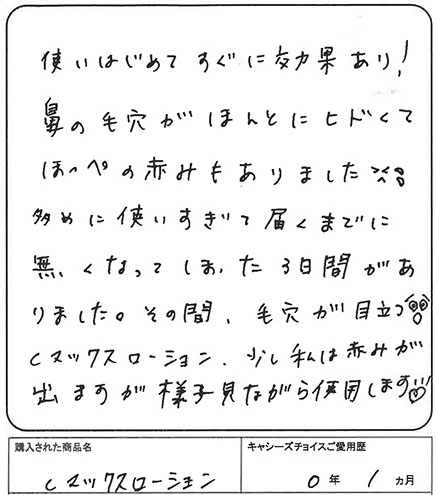 使いはじめてすぐに効果あり!
鼻の毛穴がほんとにヒドくて
ほっぺの赤みもありました
多めに使いすぎて届くまでに
無くなってしまった3日間があ
りました。その間、毛穴が目立つ
Cマックスローション、少し私は赤みが
出ますが様子見ながら使用します
購入された商品名
キャシーズチョイスご愛用歴
Cマックスローション
0年 1ヵ月